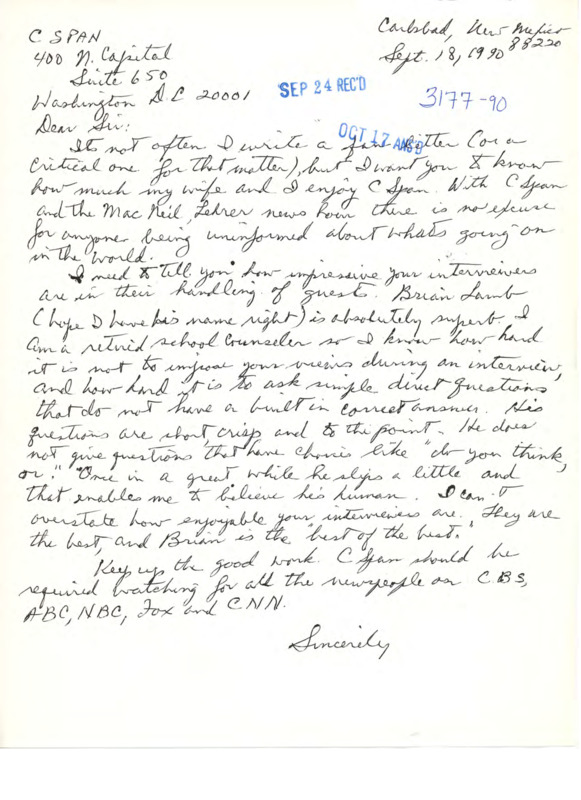 C SPAN
400 N. Capital
Suite 650
Washington D.C 20001
Carlsbad, New Mexico
88220
Sept. 18, 1990
SEP 24 REC'D
3177-90
OCT 17 ANS'D
Dear Sir:
Its not often I write a fan letter (or a
critical one for that matter), but I want you to know
how much my wife and I enjoy C Span. With C Span
and the Mac Neil, Lehrer news hour there is no excuse
for anyone being uninformed about whats going on
in the world.
I need to tell you how impressive your interviewers
are in their handling of guest. Brian Lamb
(hope I have his name right) is absolutely superb. I
am a retired school counselor so I know how hard
it is not to impose your views during an interview,
and how hard it is to ask simple direct questions
that do not have a built in correct answer. His
questions are short, crisp and to the point. He does
not give questions that have choices like "do you think,
or." Once in a great while he slips a little and
that enables me to believe he's human. I can't
overstate how enjoyable your interviewers are. They are
the best, and Brian is the best of the best.
Keep up the good work. C Span should be
required watching for all the newspeople on C.B.S,
ABC, NBC, Fox and CNN.
Sincerely